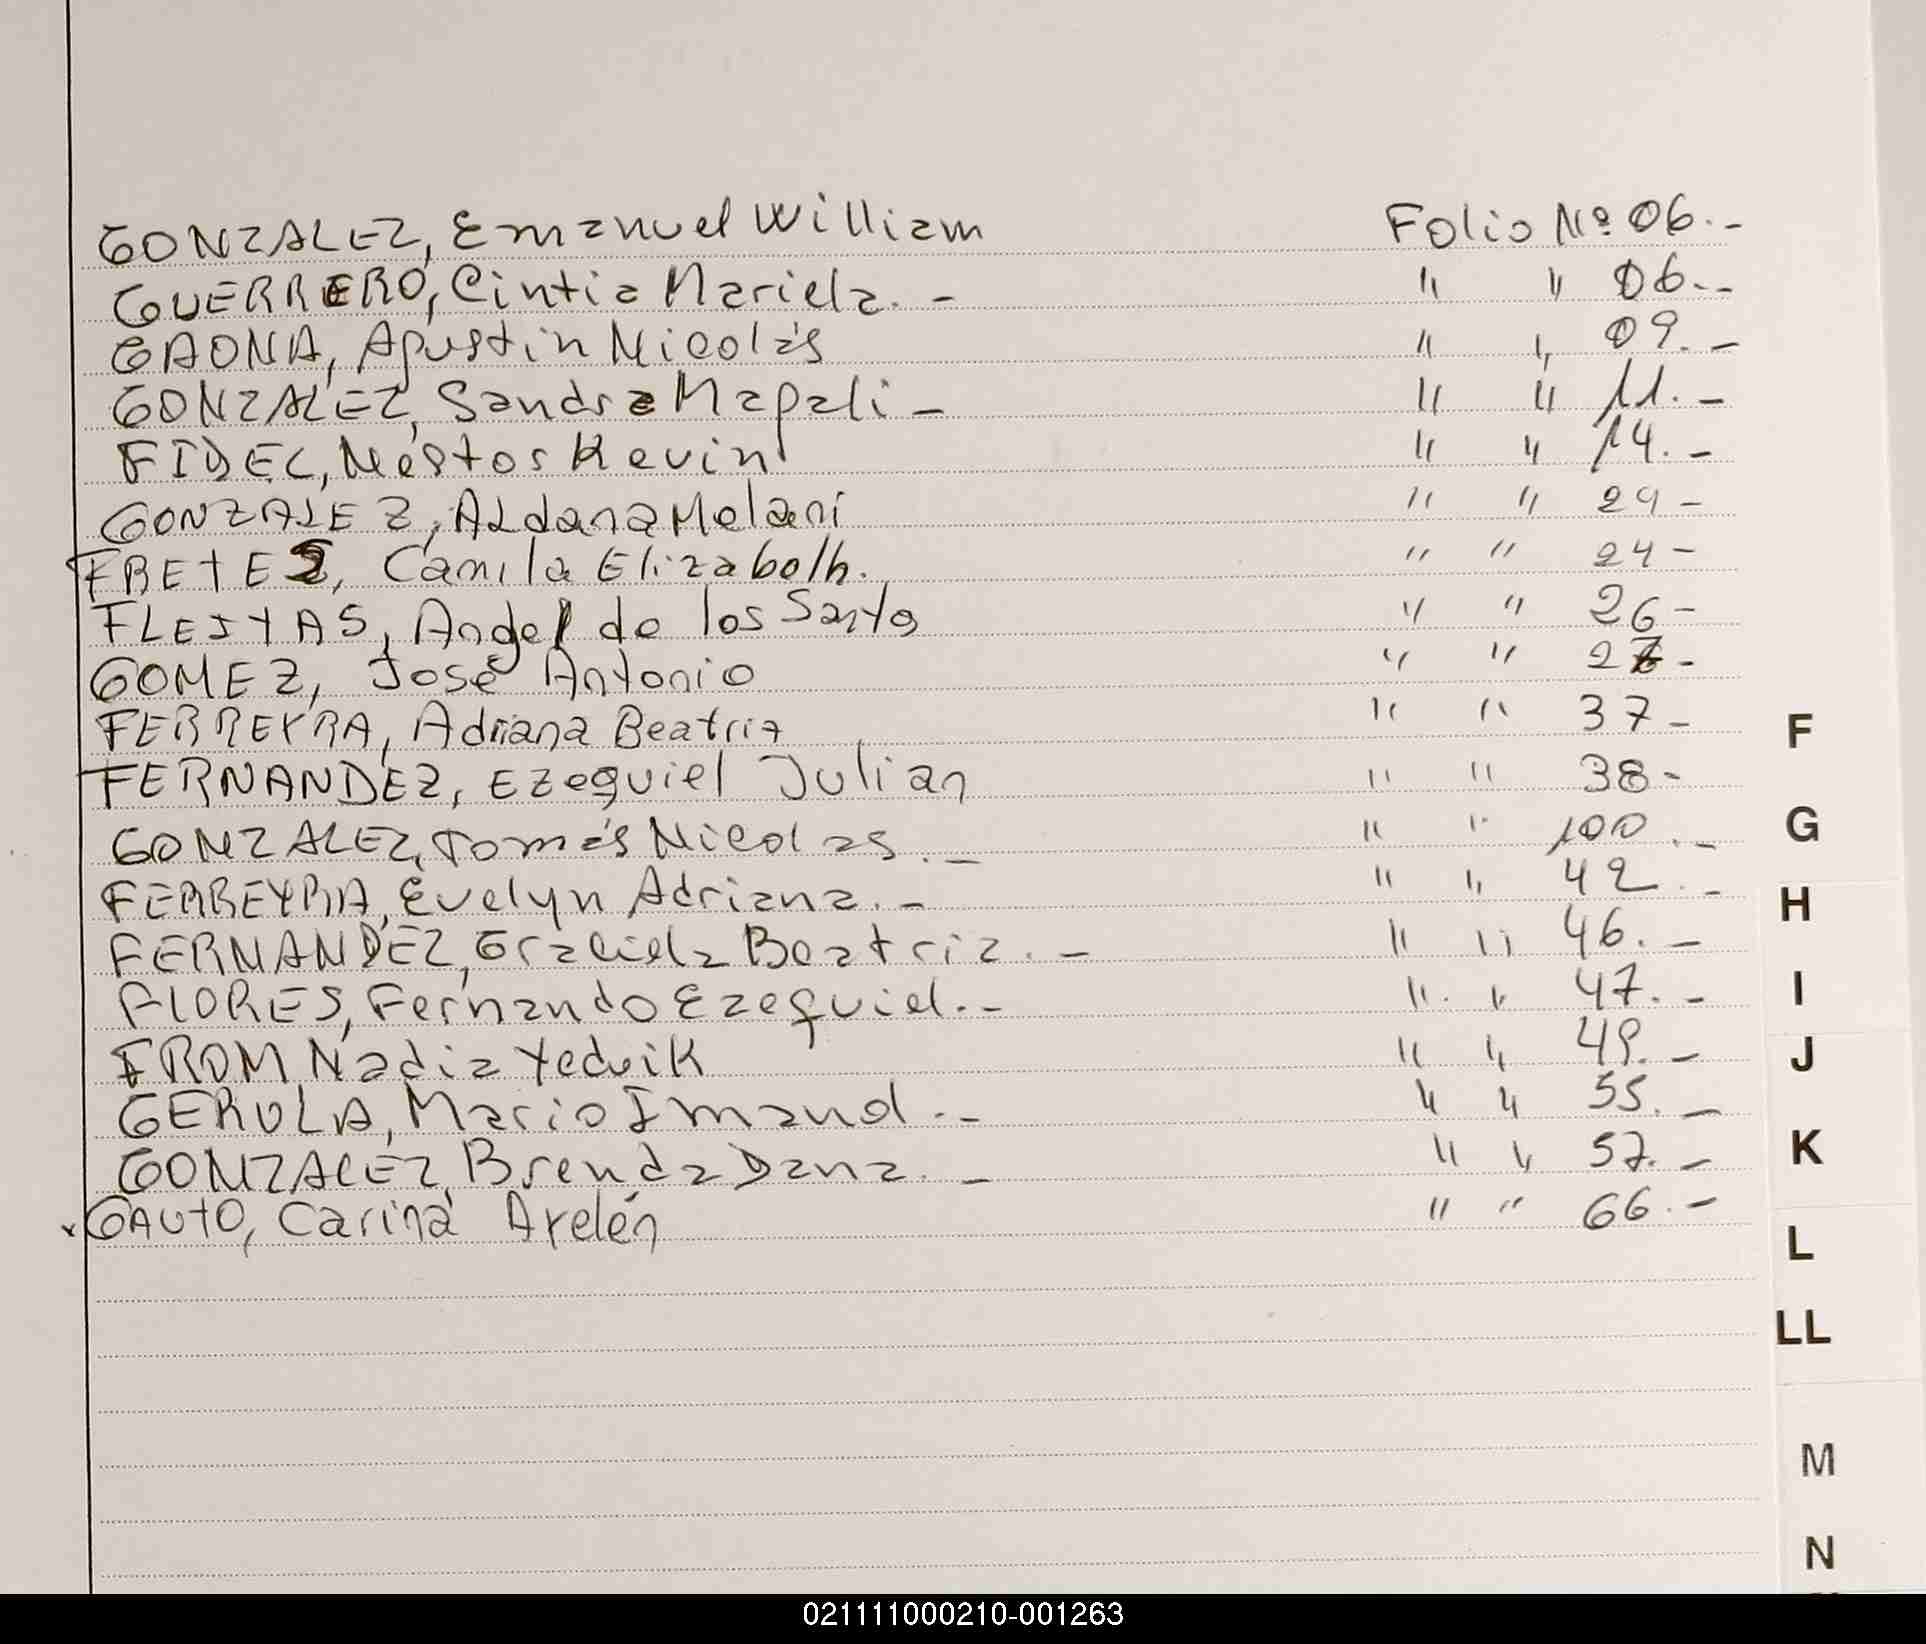 GONZALEZ, Emanuel William Folio Nº 06.-
GUERRERO, Cintia Mariela.- " " 06.-
GAONA, Agustin Nicolás " " 09.-
GONZALEZ, Sandra Magali - " " 11.-
FIDEL, Néstor Kevin " " 14.-
GONZALEZ, Aldana Melani " " 24-
FRETES, Camila Elizabeth. " " 24-
FLEITAS, Angel de los Santos " " 26-
GOMEZ, José Antonio " " 27-
FERREYRA, Adriana Beatriz " " 37-
FERNANDEZ, Ezequiel Julian " " 38-
GONZALEZ, Tomás Nicolas.- " " 100.-
FERREYRA, Evelyn Adriana.- " " 42.-
FERNANDEZ, Graciela Beatriz.- " " 46.-
FLORES, Fernando Ezequiel.- " " 47.-
FROM Nadia Yedvik " " 49.-
GEROLA, Mario Imanol.- " " 55.-
GONZALEZ, Brenda Dana.- " " 57.-
GAUTO, Carina Ayelén " " 66.-
F
G
H
I
J
K
L
LL
M
N
021111000210-001263